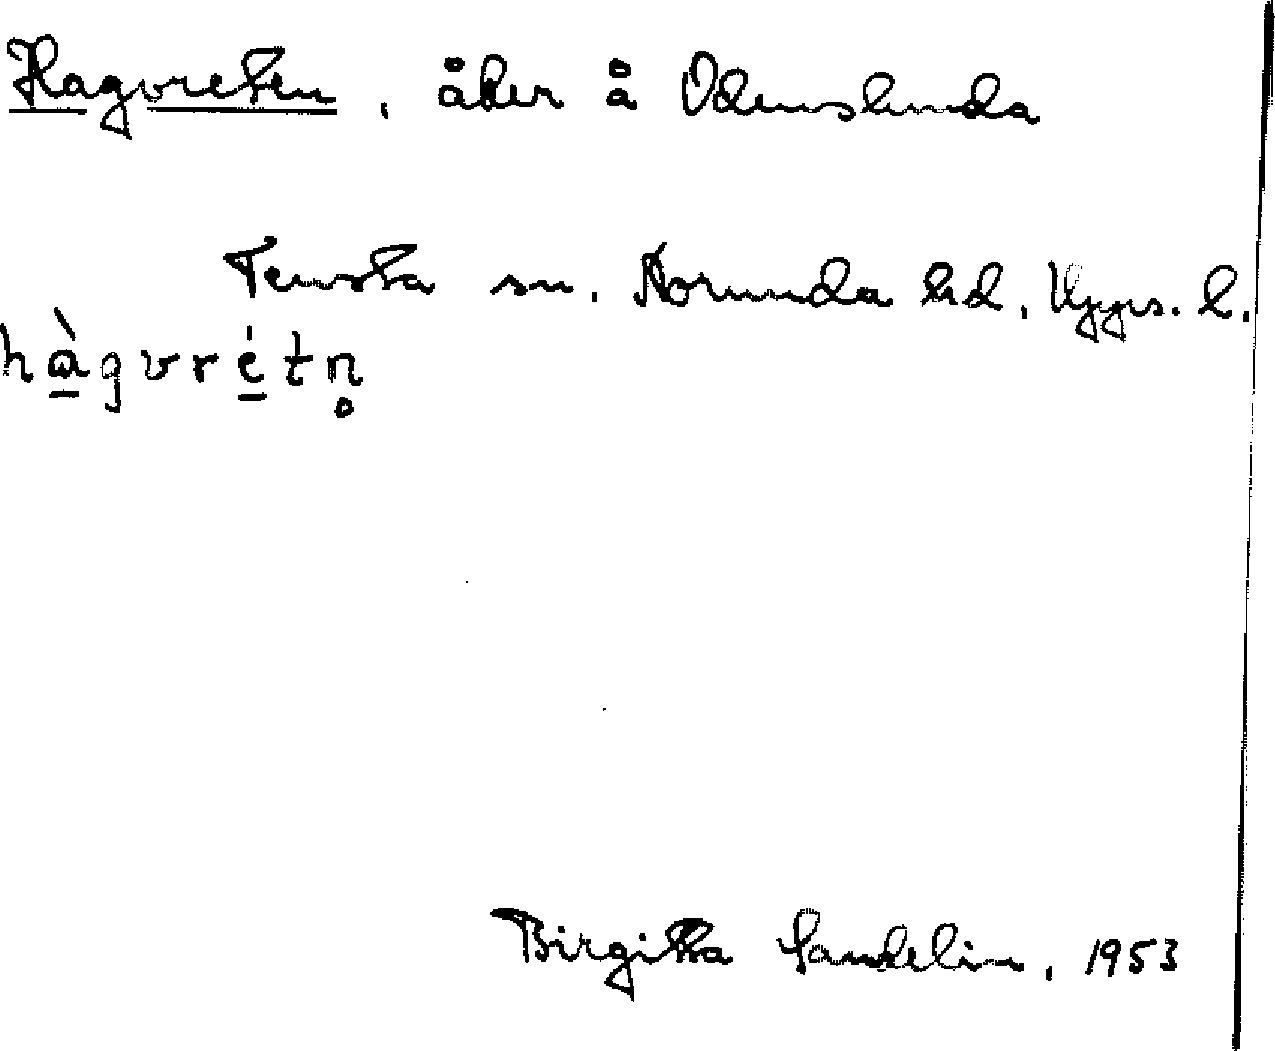 Hagvreten, åker å Odenslunda
Tensta sn. Norunda hd. Upps. l.
hàgvrétn̥
Birgitta Sandelin, 1953